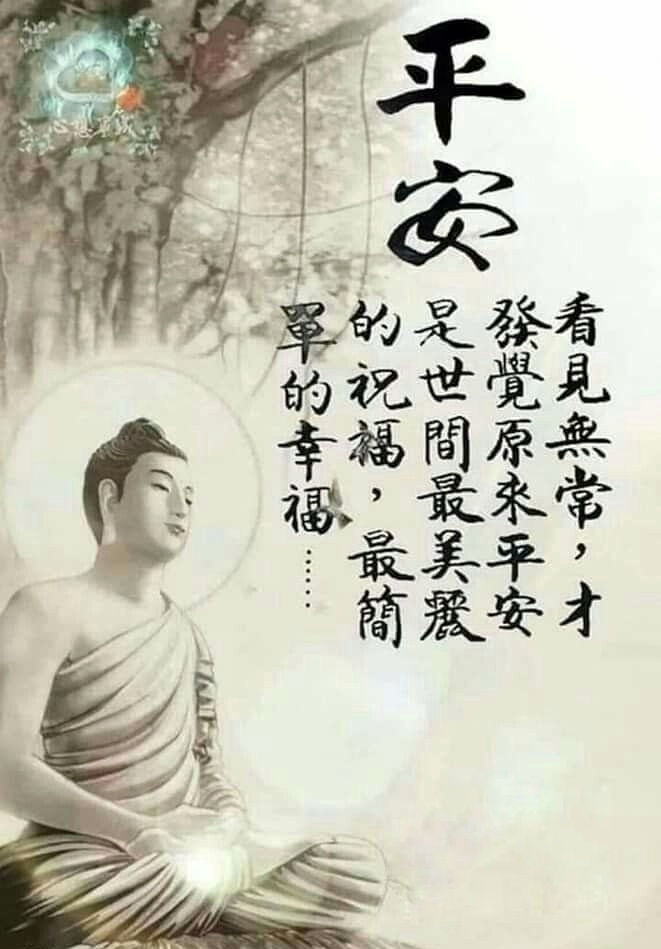 平安
看見無常，才
發覺原來平安
是世間最美麗
的祝福，最簡
單的幸福……
心想事成